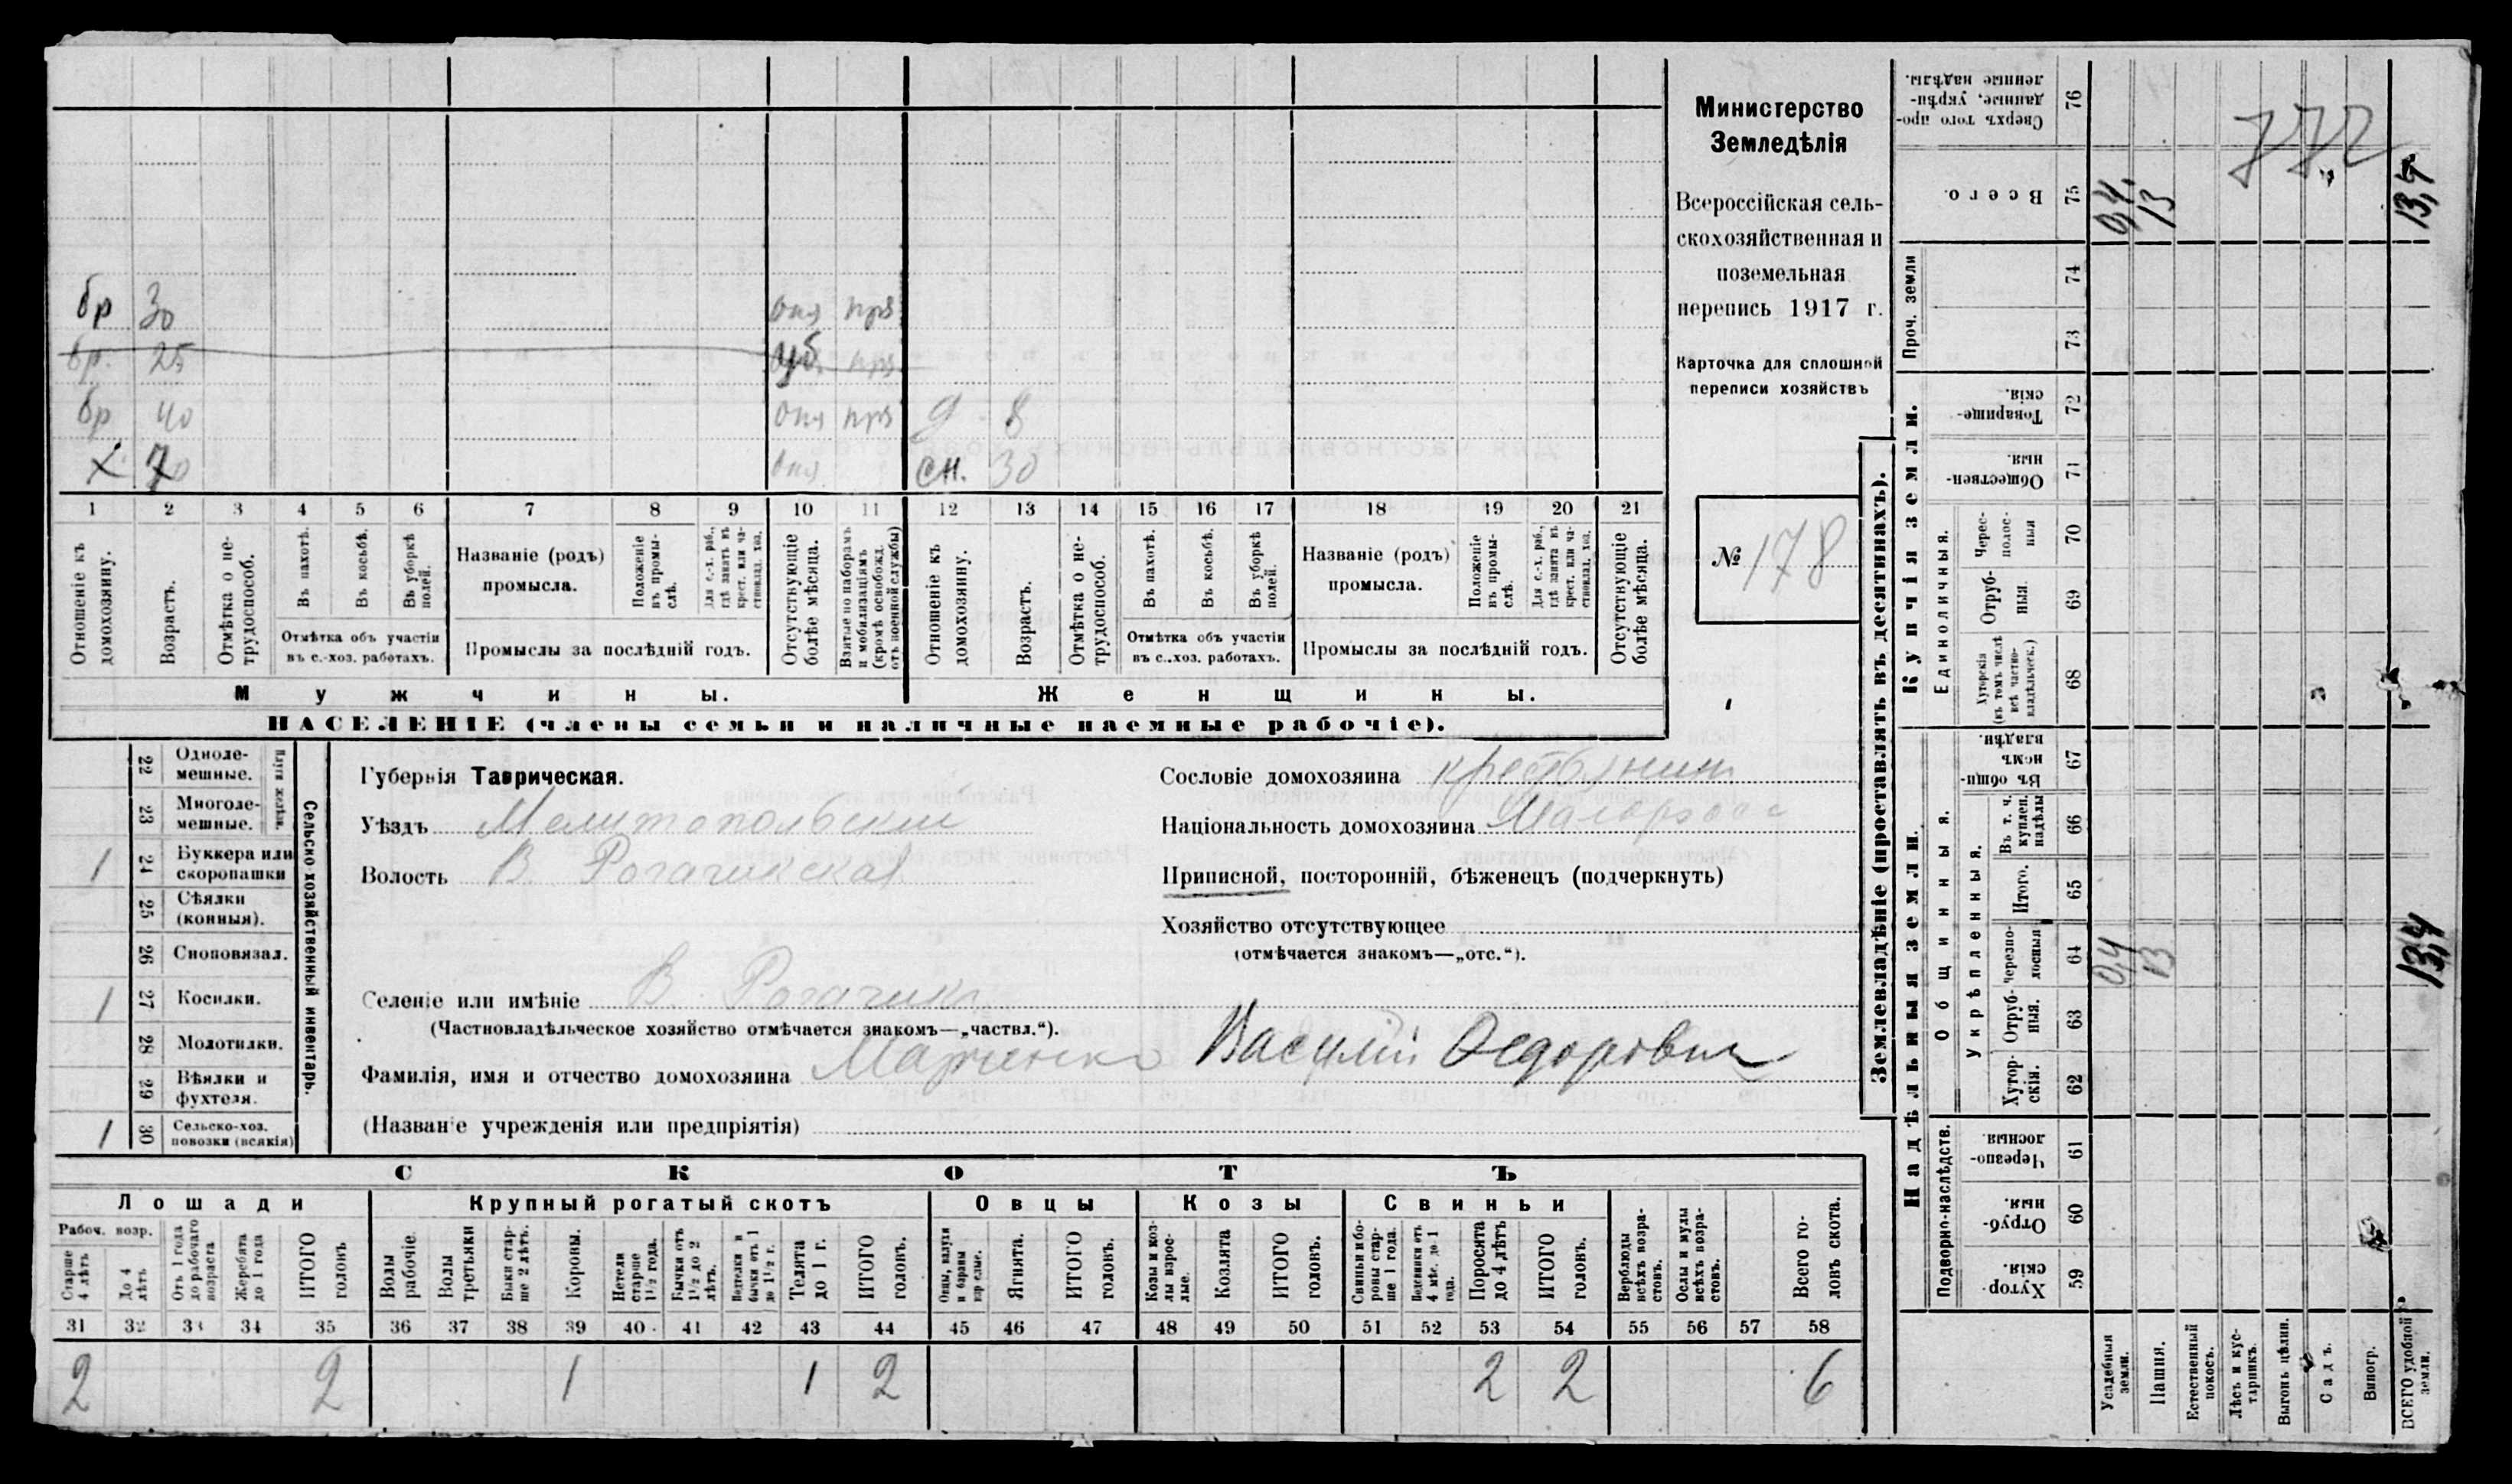 Министерство
Земледѣлія
Всероссійская сель-
скохозяйственная и
поземельная
перепись 1917 г.
Карточка для сплошной
переписи хозяйствъ
№ 178
772
бр 30
бр. 25 уб.
бр 40 д. 8
х. 70 сн. 30
1 2 3 4 5 6 7 8 9 10 11 12 13 14 15 16 17 18 19 20 21
Отношеніе къ домохозяину.
Возрастъ.
Отмѣтка о не-трудоспособ.
Въ пахотѣ.
Въ косьбѣ.
Въ уборкѣ полей.
Отмѣтка объ участіи
въ с.-хоз. работахъ.
Названіе (родъ)
промысла.
Положеніе въ промы-слѣ.
Для с.-х. раб., гдѣ занятъ въ крест. или ча-стновлад. хоз.
Промыслы за послѣдній годъ.
Отсутствующіе болѣе мѣсяца.
Взятые по наборамъ и мобилизаціямъ (кромѣ освобожд. отъ военной службы)
Отношеніе къ домохозяину.
Возрастъ.
Отмѣтка о не-трудоспособ.
Въ пахотѣ.
Въ косьбѣ.
Въ уборкѣ полей.
Отмѣтка объ участіи
въ с..хоз. работахъ.
Названіе (родъ)
промысла.
Положеніе въ промы-слѣ.
Для с.-х. раб., гдѣ занята въ крест. или ча-стновлад. хоз.
Промыслы за послѣдній годъ.
Отсутствующіе болѣе мѣсяца.
Мужчины. Женщины.
НАСЕЛЕНІЕ (члены семьи и наличные наемные рабочіе).
Сельско-хозяйственный инвентарь.
Плуги желѣзн.
22 Одноле-мешные.
23 Многоле-мешные.
1 24 Буккера или скоропашки
25 Сѣялки (конныя).
26 Сноповязал.
1 27 Косилки.
28 Молотилки.
29 Вѣялки и фухтеля.
1 30 Сельско-хоз. повозки (всякія)
Губернія Таврическая.
Уѣздъ Мелитопольскій
Волость В. Рогачикская
Селеніе или имѣніе В. Рогачикъ
(Частновладѣльческое хозяйство отмѣчается знакомъ—„частвл.“).
Фамилія, имя и отчество домохозяина Марченко Василій Ѳедорович
(Названіе учрежденія или предпріятія)
Сословіе домохозяина крестьянин
Національность домохозяина Малоросс
Приписной, посторонній, бѣженецъ (подчеркнуть)
Хозяйство отсутствующее
(отмѣчается знакомъ—„отс.“).
СКОТЪ
Лошади Крупный рогатый скотъ Овцы Козы Свиньи
Рабоч. возр.
Старше 4 лѣтъ
До 4 лѣтъ
Отъ 1 года до рабочаго возраста
Жеребята до 1 года
ИТОГО головъ
Волы рабочіе.
Волы третьяки
Быки стар-ше 2 лѣтъ.
Коровы.
Нетели старше 1½ года.
Бычки отъ 1½ до 2 лѣтъ.
Нетелки и бычки отъ 1 до 1½ г.
Телята до 1 г.
ИТОГО головъ.
Овцы, валухи и бараны взрослые.
Ягнята.
ИТОГО головъ.
Козы и коз-лы взрос-лые.
Козлята
ИТОГО головъ.
Свиньи и бо-ровы стар-ше 1 года.
Подсвинки отъ 4 мѣс. до 1 года.
Поросята до 4 лѣтъ
ИТОГО головъ.
Верблюды всѣхъ возра-стовъ.
Ослы и мулы всѣхъ возра-стовъ.
Всего го-ловъ скота.
31 32 33 34 35 36 37 38 39 40 41 42 43 44 45 46 47 48 49 50 51 52 53 54 55 56 57 58
2 2 1 1 2 2 2 6
Землевладѣніе (проставлять въ десятинахъ).
Купчія земли.
Надѣльныя земли.
Сверхъ того про-данные, укрѣп-ленные надѣлы. 76
Всего. 75 0,4. 13 13,4
Проч. земли
74
73
Товарище-скія. 72
Обществен-ныя. 71
Единоличныя.
Черес-полос-ныя 70
Отруб-ныя. 69
Хуторскія (въ томъ числѣ всѣ частно-владѣльческ.) 68
Общинныя.
Въ общи-номъ владѣн. 67
Укрѣпленныя.
Въ т. ч. куплен. надѣлы 66
Итого. 65
Черезпо-лосныя 64 0,4 13 13,4
Отруб-ныя. 63
Хутор-скія. 62
Подворно-наслѣдств.
Черезпо-лосныя. 61
Отруб-ныя. 60
Хутор-скія. 59
Усадебныя земли.
Пашня.
Естественный покосъ.
Лѣсъ и кус-тарникъ.
Выгонъ цѣлин.
Садъ.
Виногр.
ВСЕГО удобной земли.